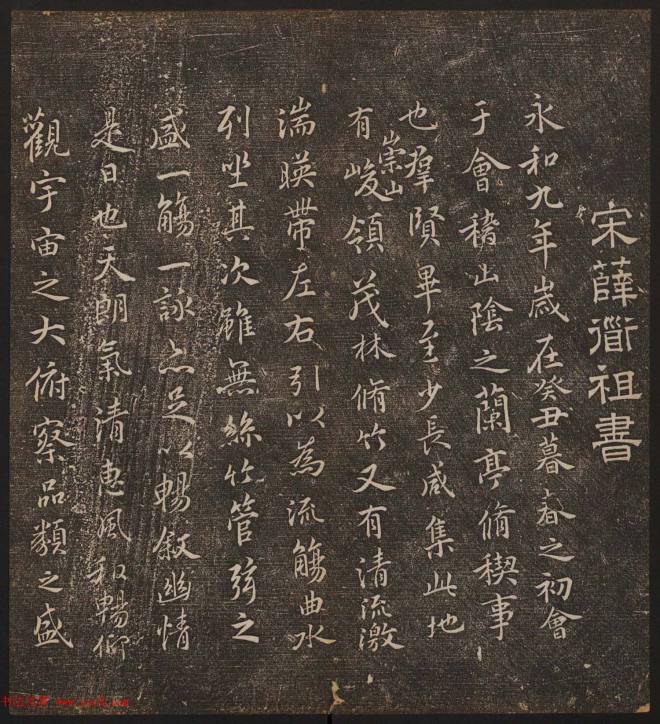 宋薛衟祖書
永和九年歲在癸丑暮春之初會
于會稽山陰之蘭亭脩稧事
也羣賢畢至少長咸集此地
有崇山峻領茂林脩竹又有清流激
湍暎帶左右引以為流觴曲水
列坐其次雖無絲竹管弦之
盛一觴一詠亦足以暢敘幽情
是日也天朗氣清惠風和暢仰
觀宇宙之大俯察品類之盛